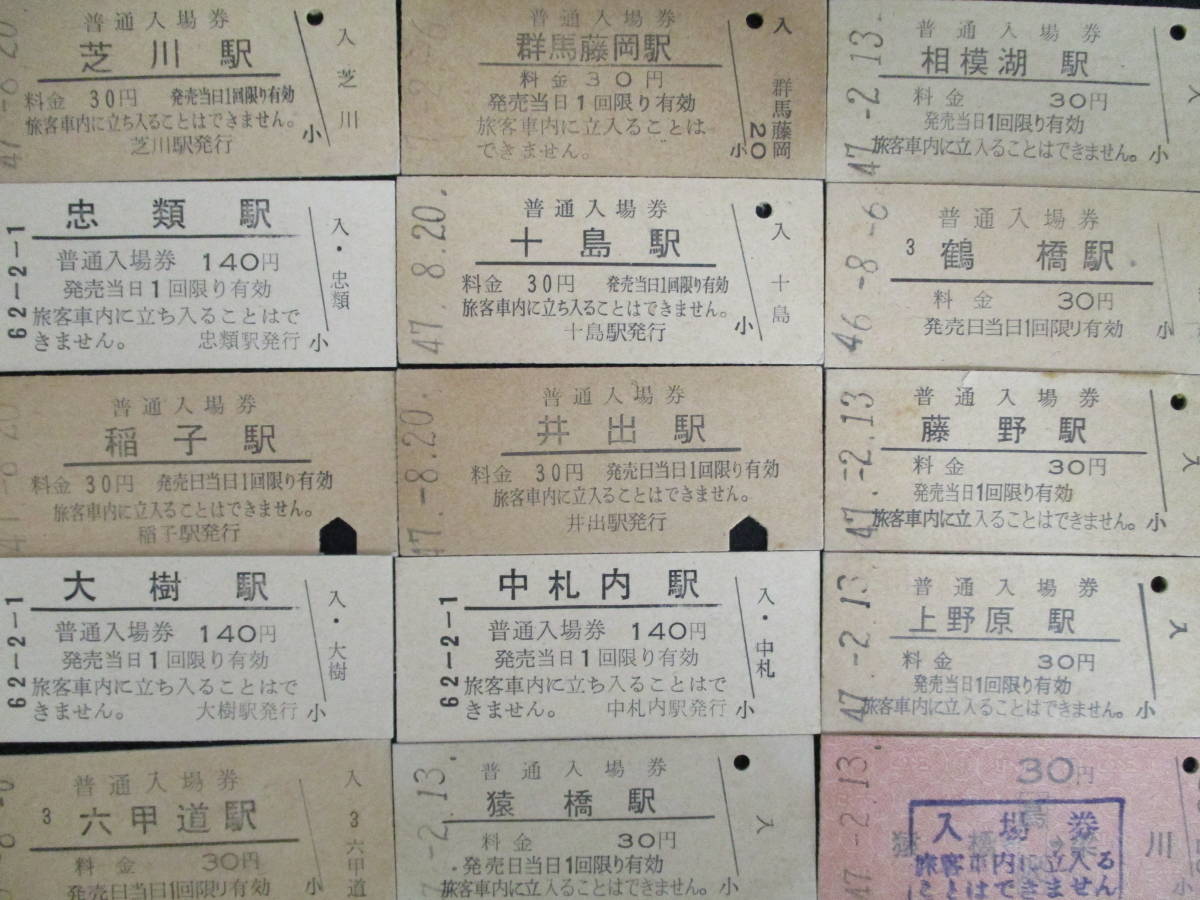 普通入場券
芝川駅
料金 30円 発売当日1回限り有効
旅客車内に立ち入ることはできません。
芝川駅発行
小
入
芝川
普通入場券
群馬藤岡駅
料金30円
発売当日1回限り有効
旅客車内に立入ることは
できません。
小
入
群馬藤岡
20
47-2 13.
普通入場券
相模湖駅
料金 30円
発売当日1回限り有効
旅客車内に立入ることはできません。小
入
62-2-1
忠類駅
普通入場券 140円
発売当日1回限り有効
旅客車内に立ち入ることはで
きません。 忠類駅発行 小
入・忠類
47.8.20.
普通入場券
十島駅
料金 30円 発売当日1回限り有効
旅客車内に立ち入ることはできません。
十島駅発行
小
入
十島
46-8-6
普通入場券
3 鶴橋駅
料金 30円
発売日当日1回限り有効
小
普通入場券
稲子駅
料金 30円 発売日当日1回限り有効
旅客車内に立入ることはできません。
稲子駅発行
47.-8.20.
普通入場券
井出駅
料金 30円 発売日当日1回限り有効
旅客車内に立入ることはできません。
井出駅発行
47.-2.13
普通入場券
藤野駅
料金 30円
発売当日1回限り有効
旅客車内に立入ることはできません。小
入
62-2-1
大樹駅
普通入場券 140円
発売当日1回限り有効
旅客車内に立ち入ることはで
きません。 大樹駅発行 小
入・大樹
62-2-1
中札内駅
普通入場券 140円
発売当日1回限り有効
旅客車内に立ち入ることはで
きません。 中札内駅発行 小
入・中札
47.-2.13
普通入場券
上野原駅
料金 30円
発売当日1回限り有効
旅客車内に立入ることはできません。小
入
普通入場券
3 六甲道駅
料金 30円
発売日当日1回限り有効
小
入
3
六甲道
-2.13.
普通入場券
猿橋駅
料金 30円
発売日当日1回限り有効
旅客車内に立入ることはできません。小
入
47-2-13.
30円
入場券
旅客車内に立入る
ことはできません
川
小